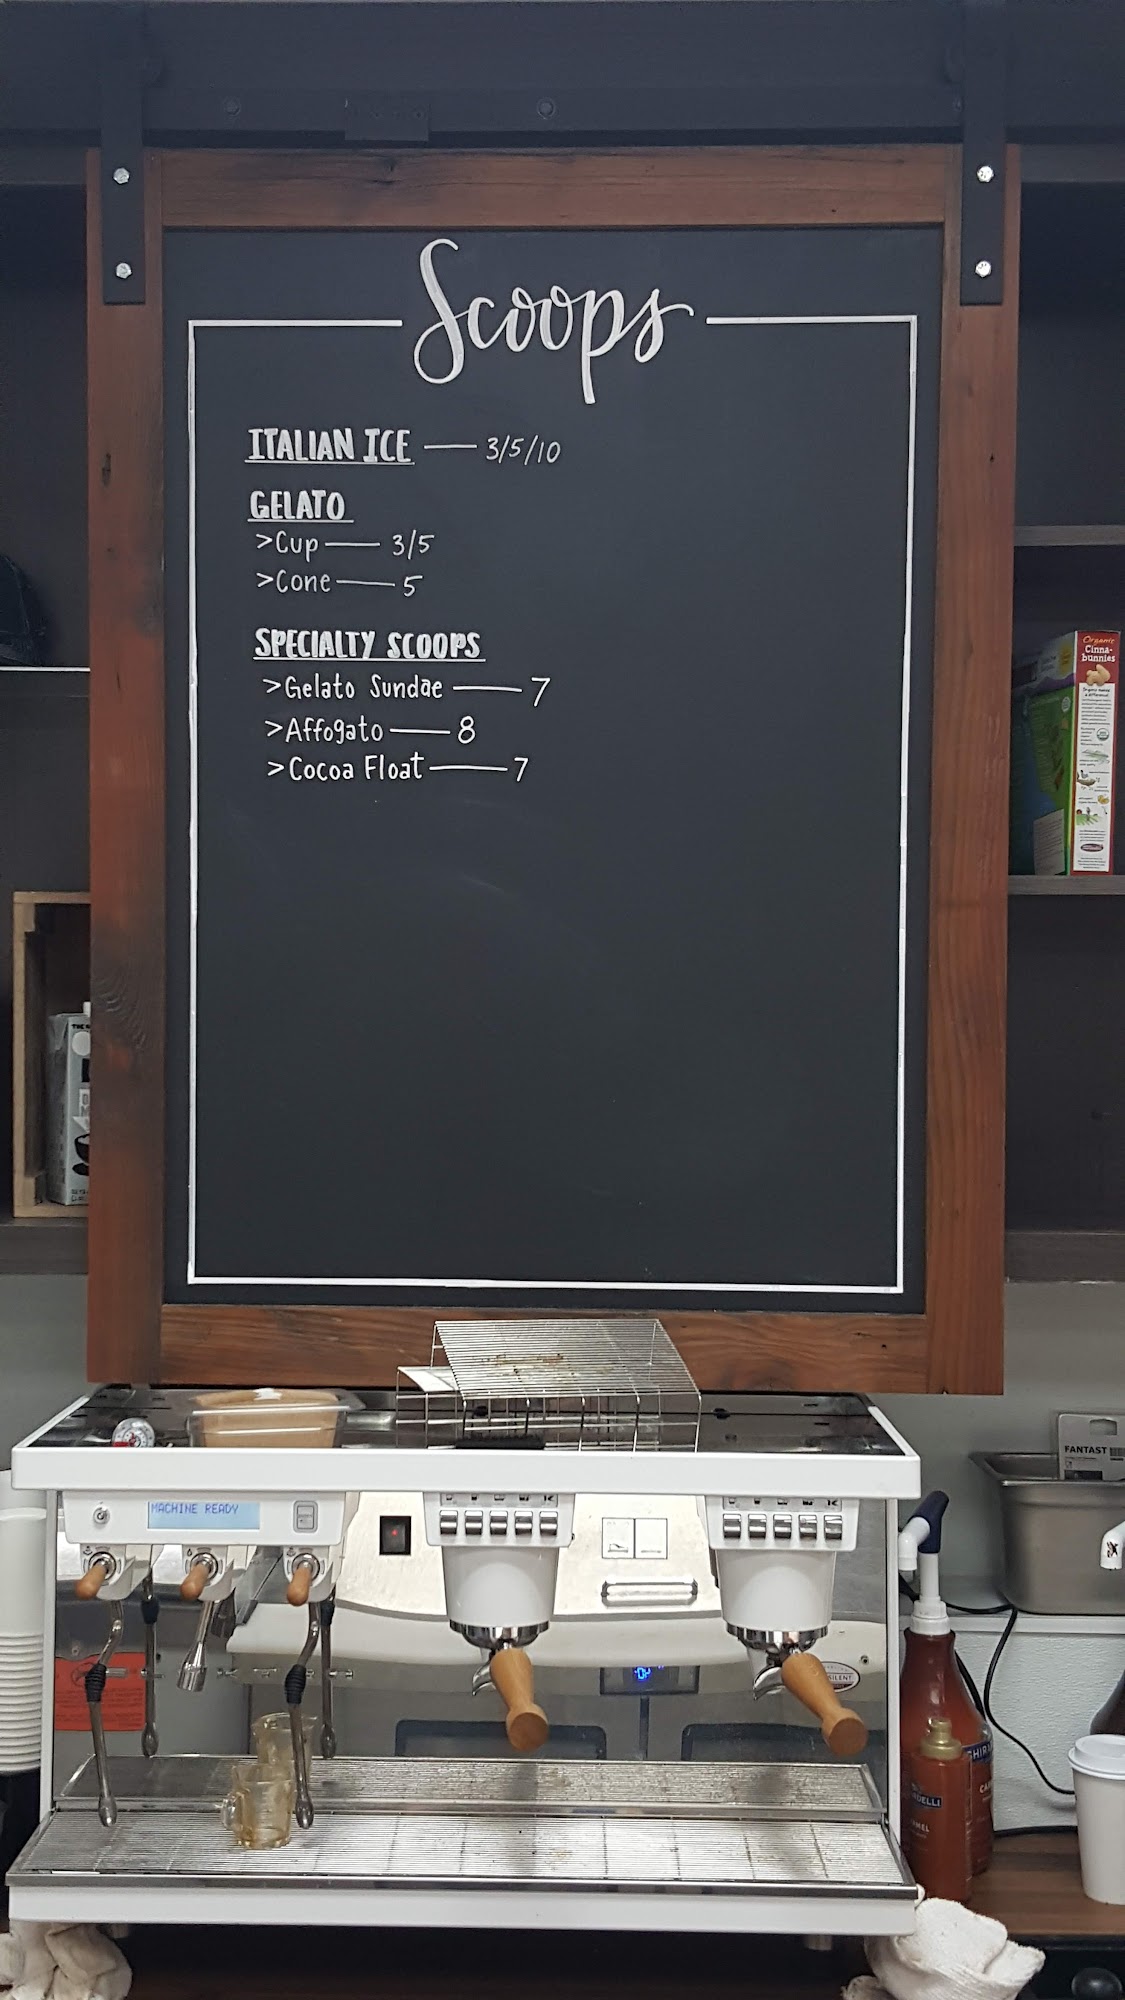 Scoops
ITALIAN ICE — 3/5/10
GELATO
>Cup — 3/5
>Cone — 5
SPECIALTY SCOOPS
>Gelato Sundae — 7
>Affogato — 8
>Cocoa Float — 7
Organic
Cinna-
bunnies
FANTAST
MACHINE READY